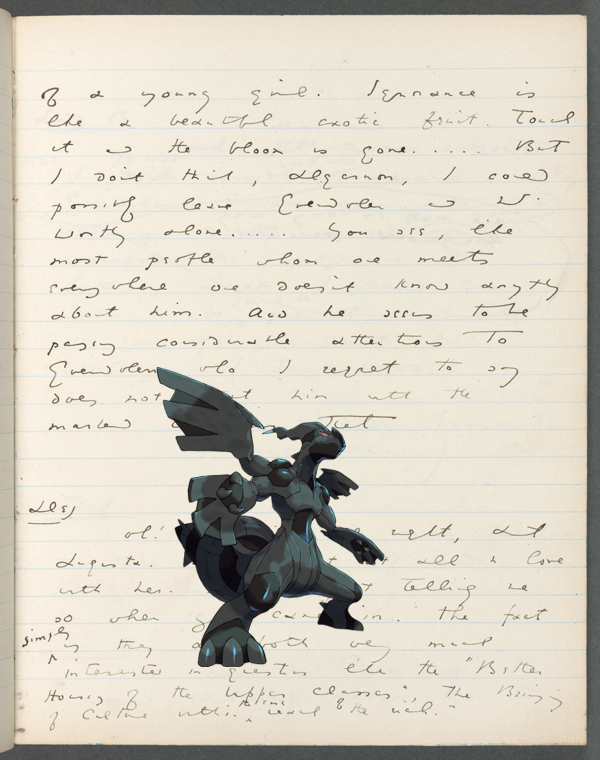 of a young girl. Ignorance is
like a beautiful exotic fruit. Touch
it and the bloom is gone..... But
I don't think, Algernon, I could
possibly leave Gwendolen and Mr.
Worthy alone..... You see, like
most people whom one meets
everywhere one doesn't know anything
about him. And he seems to be
paying considerable attentions to
Gwendolen who I regret to say
does not him with the
marked that
Alg
oh! right, Aunt
Augusta. all in love
with her. telling me
so when came in. The fact
simply
is they both very much
interested in questions like the "Better
Housing of the Upper Classes", The Bringing
of Culture within the reach of the rich."